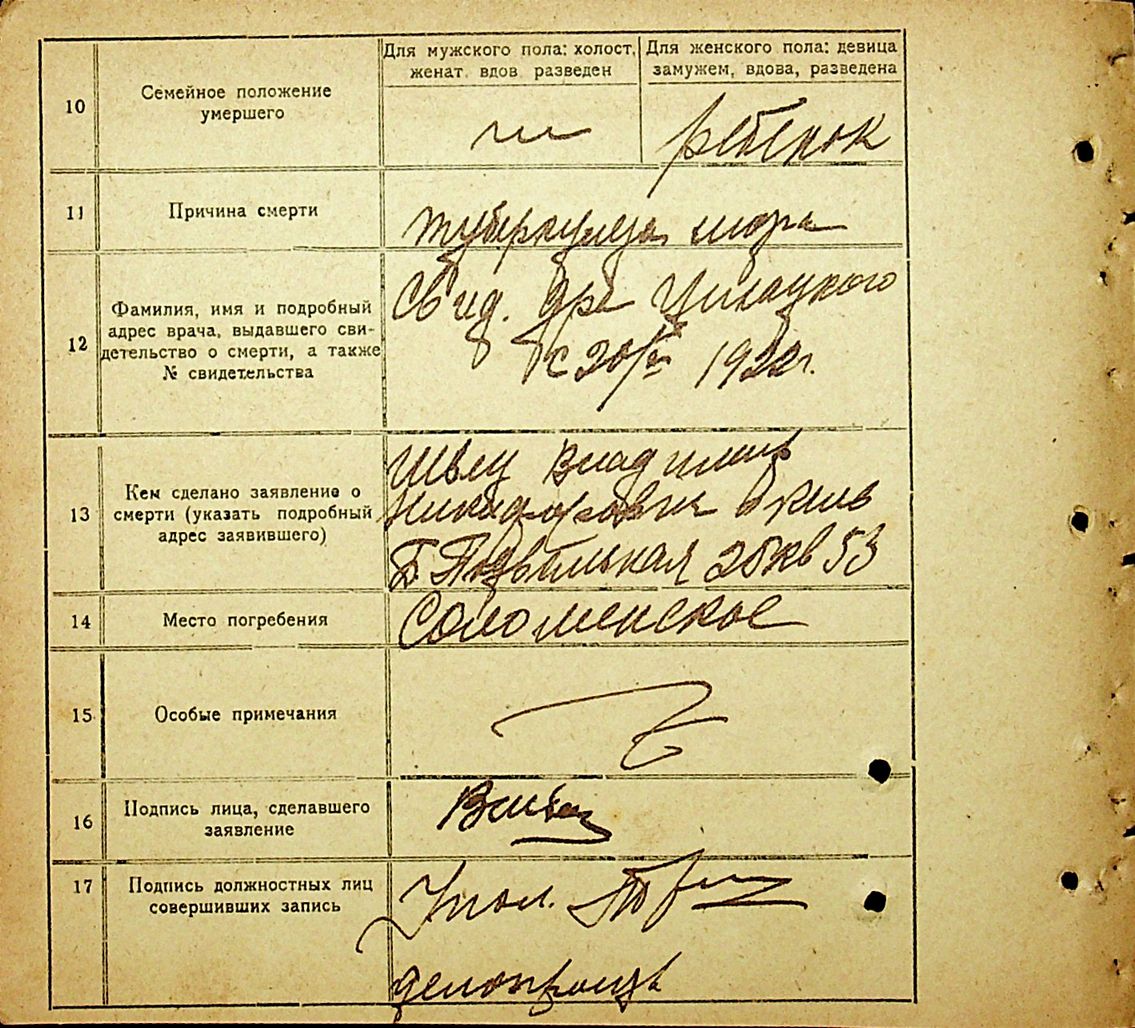 10
Семейное положение
умершего
Для мужского пола: холост,
женат, вдов разведен
Для женского пола: девица
замужем, вдова, разведена
ребенок
11
Причина смерти
туберкулеза
12
Фамилия, имя и подробный
адрес врача, выдавшего сви-
детельство о смерти, а также
№ свидетельства
Свид. д-ра
с 20/ 1922 г.
13
Кем сделано заявление о
смерти (указать подробный
адрес заявившего)
Швец Владимир
Никифорович
Б. Подвальная 25 кв 53
14
Место погребения
Соломенское
15
Особые примечания
16
Подпись лица, сделавшего
заявление
17
Подпись должностных лиц
совершивших запись
Упол.
делопроизв